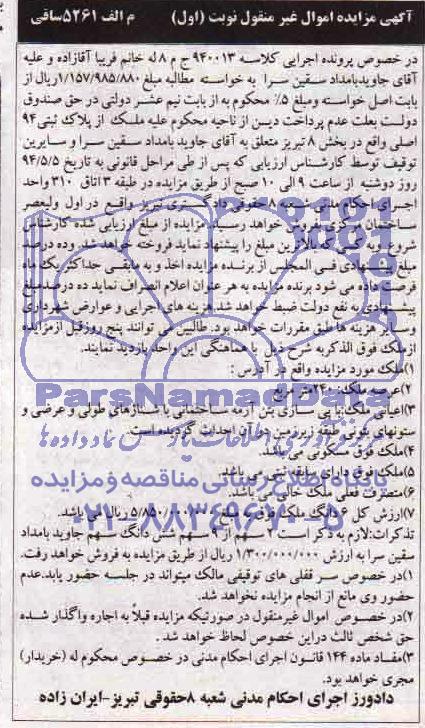 آگهی مزایده اموال غیر منقول نوبت (اول) م الف ۵۲۶۱سافی
در خصوص پرونده اجرایی کلاسه ۹۴۰۰۱۳ ج م ۸ له خانم فریبا آقازاده و علیه
آقای جاویدبامداد سقین سرا به خواسته مطالبه مبلغ ۱/۱۵۷/۹۸۵/۸۸۰ریال از
بابت اصل خواسته ومبلغ ۵٪ محکوم به از بابت نیم عشر دولتی در حق صندوق
دولت بعلت عدم پرداخت دیـن از ناحیه محکوم علیه ملک از پلاک ثبتی ۹۴
اصلی واقع در بخش ۸ تبریز متعلق به آقای جاوید بامداد سقین سرا و سایرین
توقیف توسط کارشناس ارزیابی که پس از طی مراحل قانونی به تاریخ ۹۴/۵/۵
روز دوشنبه از ساعت ۹ الی ۱۰ صبح از طریق مزایده در طبقه ۳ اتاق ۳۱۰ واحد
اجرای احکام مدنی شعبه ۸حقوقی دادگستری تبریز واقع در اول ولیعصر
ساختمان مرکزی بفروش خواهد رسید. مزایده از مبلغ ارزیابی شده کارشناس
شروع و به کسی که بالاترین مبلغ را پیشنهاد نماید فروخته خواهد شد. وده درصد
مبلغ پیشنهادی فی المجلس از برنده مزایده اخذ و به مابقی حداکثر یک ماه
فرصت داده می شود برنده مزایده به هر عنوان اعلام انصراف نماید ده درصدمبلغ
پیشنهادی به نفع دولت ضبط خواهد شد. هزینه های اجرایی و عوارض شهرداری
وسایر هزینه ها طبق مقررات خواهد بود. طالبین می توانند پنج روزقبل ازمزایده
از ملک فوق الذکر به شرح ذیل با هماهنگی این واحد بازدید نمایند.
۱)ملک مورد مزایده واقع در آدرس :
۲)عرصه ملک: ۲۴۰متر مربع
۳)اعیانی ملک:با پی سازی بتن آرمه ساختمانی با شناژهای طولی و عرضی و
ستونهای بتونی طبقه زیرزمین در آن احداث گردیده است.
۴)ملک فوق مسکونی می باشد.
۵)ملک فوق دارای سابقه ثبتی می باشد.
۶)متصرف فعلی ملک خالی می باشد.
۷)ارزش کل ۶ دانگ ملک فوق ۵/۸۵۰/۰۰۰/۰۰۰ ریال می باشد.
تذکرات: لازم به ذکر است ۲ سهم از ۹ سهم شش دانگ سهم جاوید بامداد
سقین سرا به ارزش ۱/۳۰۰/۰۰۰/۰۰۰ ریال از طریق مزایده به فروش خواهد رفت.
۱)در خصوص سر قفلی های توقیفی مالک میتواند در جلسه حضور یابد.عدم
حضور وی مانع از انجام مزایده نخواهد شد.
۲)در خصوص اموال غیرمنقول در صورتیکه مزایده قبلاً به اجاره واگذار شده
حق شخص ثالث دراین خصوص لحاظ خواهد شد.
۳)مفـاد ماده ۱۴۴ قانون اجرای احکام مدنی در خصوص محکوم له (خریدار)
مجری خواهد بود.
دادورز اجرای احکام مدنی شعبه ۸حقوقی تبریز-ایران زاده
ParsNamadData
پایگاه اطلاع رسانی مناقصه و مزایده
۰۲۱-۸۸۳۴۹۶۷۰-۵